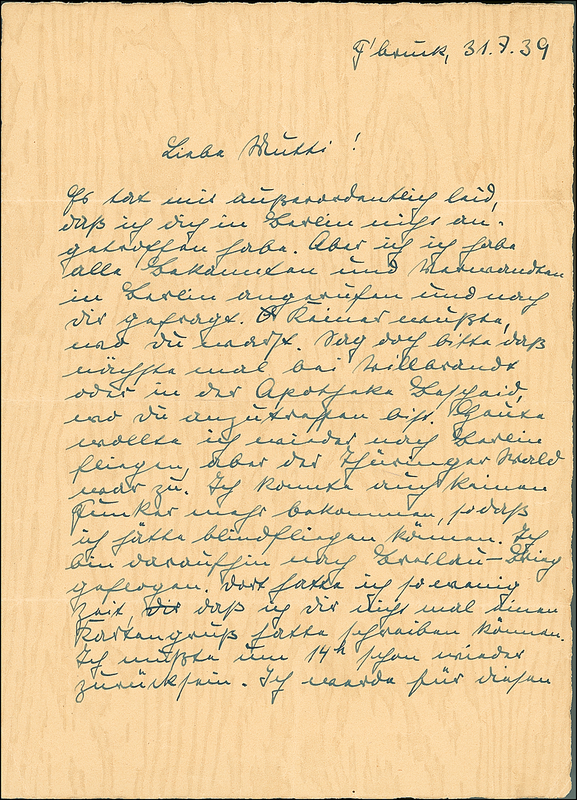 F'bruck, 31.7.39
Liebe Mutti!
Es tat mir außerordentlich leid,
daß ich dich in Berlin nicht an-
getroffen habe. Aber ich ich habe
alle Bekannten und Verwandten
in Berlin angerufen und nach
dir gefragt. Keiner wußte,
wo du warst. Sag doch bitte daß
nächste mal bei Willbrandt
oder in der Apotheke Bescheid,
wo du anzutreffen bist. Heute
wollte ich wieder nach Berlin
fliegen, aber der Thüringer Wald
war zu. Ich konnte auch keinen
Funker mehr bekommen, sodaß
ich hätte blindfliegen können. Ich
bin daraufhin nach Breslau-Brieg
geflogen. Dort hatte ich so wenig
Zeit, daß ich dir nicht mal einen
Kartengruß hätte schreiben können.
Ich mußte um 14h schon wieder
zurück sein. Ich werde für diesen